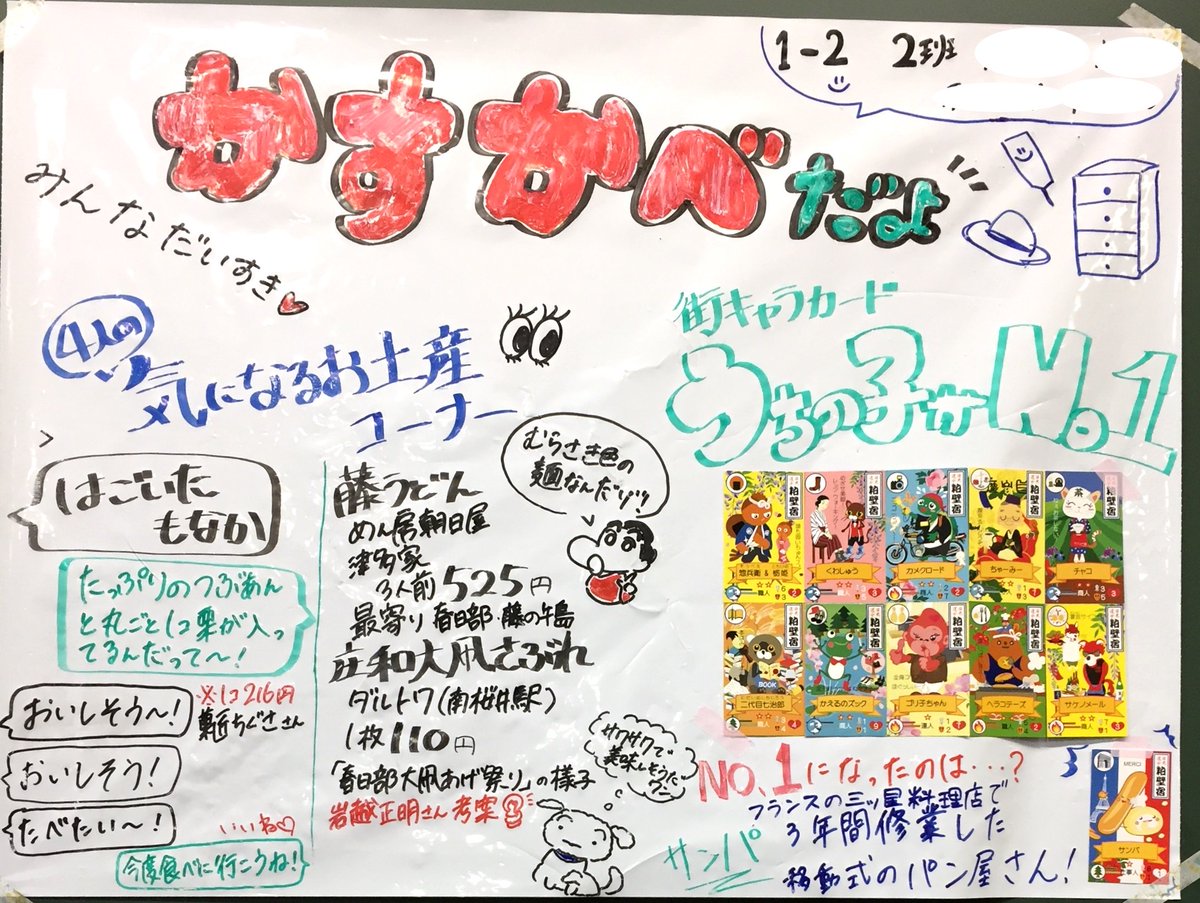 1-2 2班
かすかべだよ
みんなだいすき♥
4人の
気になるお土産
コーナー
はごいた
もなか
たっぷりのつぶあん
と丸ごと1コ栗が入っ
てるんだって〜!
※1コ216円
おいしそう〜!
おいしそう!
たべたい〜!
いいね♡
今度食べに行こうね!
藤うどん
めん房朝日屋
津多家
3人前525円
最寄り 春日部・藤の牛島
庄和大凧さぶれ
ダルトワ(南桜井駅)
1枚110円
「春日部大凧あげ祭り」の様子
岩越正明さん考案
むらさき色の
麺なんだゾ!
サクサクで
美味しそうだワン
街キャラカード
うちの子がNo.1
粕壁宿
惣兵衛&栃姫
職人
粕壁宿
くわしゅう
職人
粕壁宿
カメクロード
職人
粕壁宿
ちゃーみー
職人
粕壁宿
茶
チャコ
職人
粕壁宿
BOOK
二代目七治郎
職人
粕壁宿
かえるのズック
職人
粕壁宿
ブリ子ちゃん
達人
粕壁宿
ヘラコテーズ
職人
粕壁宿
サケノメール
職人
NO.1になったのは…?
フランスの三ッ星料理店で
3年間修業した
サンパ
移動式のパン屋さん!
MERCI
粕壁宿
サンパ